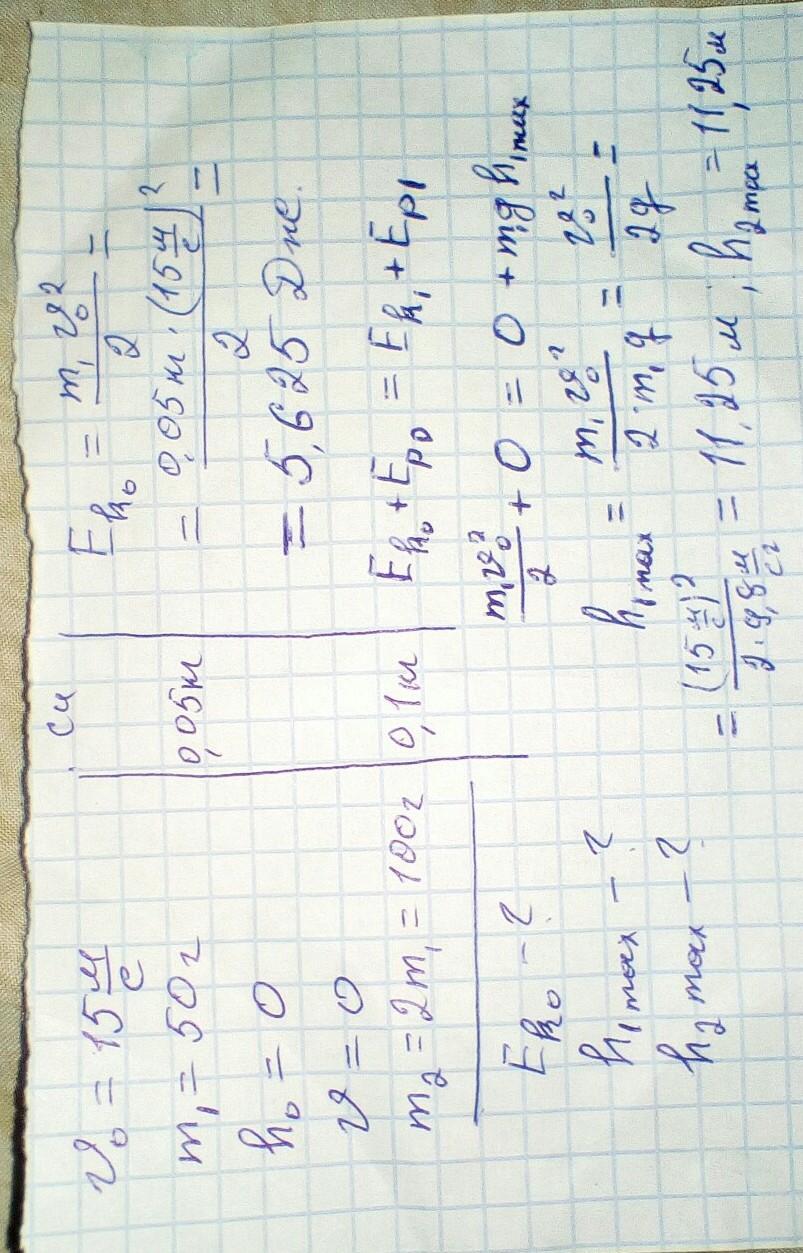 v₀ = 15 м/с
m₁ = 50 г
h₀ = 0
v = 0
m₂ = 2m₁ = 100 г
Eₖ₀ - ?
h₁ max - ?
h₂ max - ?
си
0,05 кг
0,1 кг
Eₖ₀ = m₁v₀²/2 =
= 0,05 кг · (15 м/с)²/2 =
= 5,625 Дж.
Eₖ₀ + Eₚ₀ = Eₖ₁ + Eₚ₁
m₁v₀²/2 + 0 = 0 + m₁gh₁max
h₁ max = m₁v₀²/2·m₁g = v₀²/2g =
= (15 м/с)²/2·9,8 м/с² = 11,25 м ; h₂ max = 11,25 м